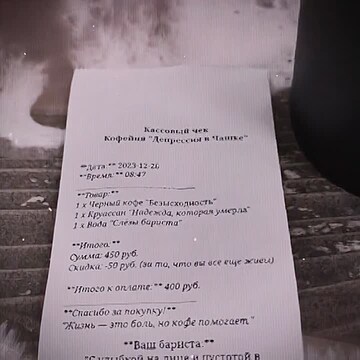 Кассовый чек
Кофейня "Депрессия в Чашке"
**Дата:** 2023-12-26
**Время:** 08:47
**Товар:**
1 x Черный кофе "Безысходность"
1 x Круассан "Надежда, которая умерла"
1 x Вода "Слёзы бариста"
**Итого:**
Сумма: 450 руб.
Скидка: -50 руб. (за то, что вы все еще живы)
**Итого к оплате:** 400 руб.
**Спасибо за покупку!**
"Жизнь — это боль, но кофе помогает."
**Ваш бариста:**
"С улыбкой на лице и пустотой в